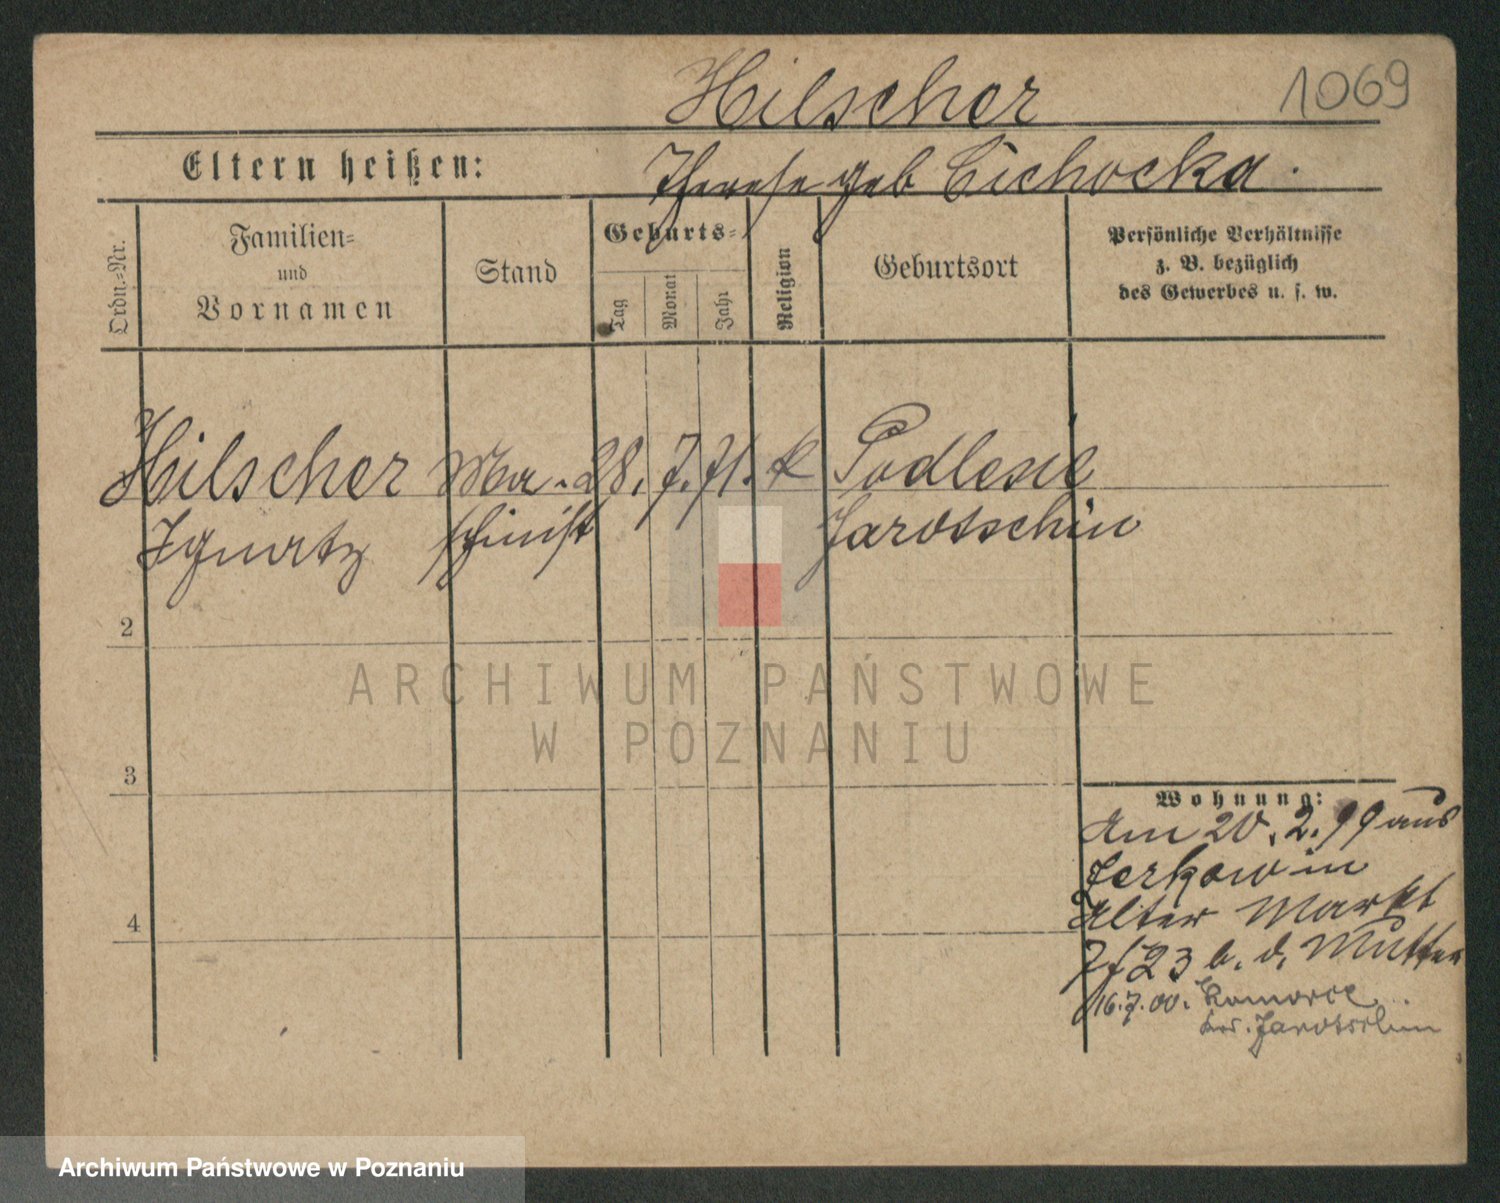 Hilscher
1069
Eltern heißen:
Therese geb Cichocka.
Ordn.=Nr.
Familien=
und
Vornamen
Stand
Geburts=
Tag
Monat
Jahr
Religion
Geburtsort
Persönliche Verhältnisse
z. B. bezüglich
des Gewerbes u. s. w.
Hilscher Ma- 28. 7. 71. k Podlesie
Ignatz schinist Jarotschin
2
ARCHIWUM PAŃSTWOWE
W POZNANIU
3
Wohnung:
Am 20. 2. 99 aus
Zerkow in
Alter Markt
7/23 b. d. Mutter
16.7.00. Komorze
Jarotschin
4
Archiwum Państwowe w Poznaniu